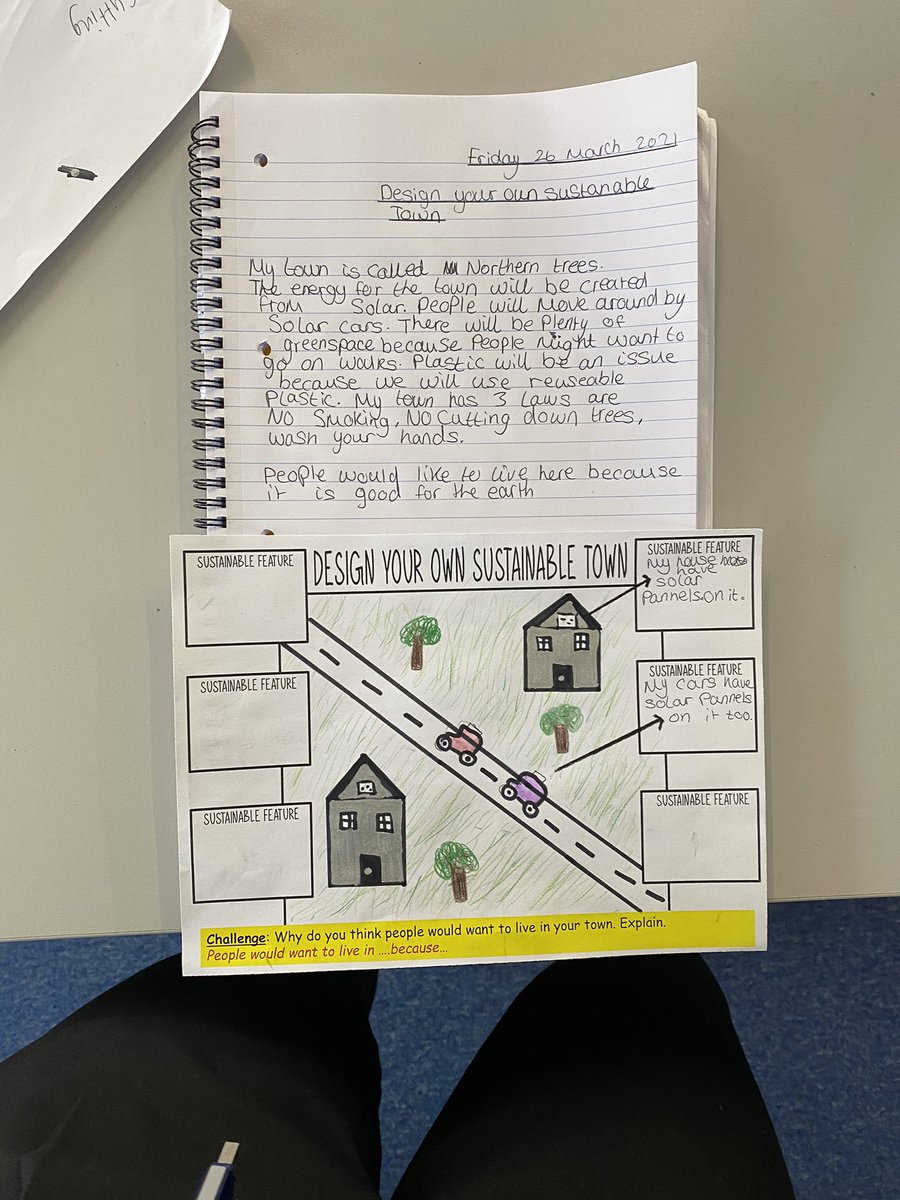 cutting
Friday 26 March 2021
Design your own sustanable
Town
My town is called Northern trees.
The energy for the town will be created
from Solar. People will move around by
Solar cars. There will be Plenty of
greenspace because People might want to
go on walks. Plastic will be an issue
because we will use reuseable
Plastic. My town has 3 laws are
NO Smoking, NO Cutting down trees,
wash your hands.
People would like to live here because
it is good for the earth
DESIGN YOUR OWN SUSTAINABLE TOWN
SUSTAINABLE FEATURE
SUSTAINABLE FEATURE
SUSTAINABLE FEATURE
SUSTAINABLE FEATURE
My house
have
solar
Pannels.on it.
SUSTAINABLE FEATURE
My cars have
solar Pannels
on it too.
SUSTAINABLE FEATURE
Challenge: Why do you think people would want to live in your town. Explain.
People would want to live in ....because...